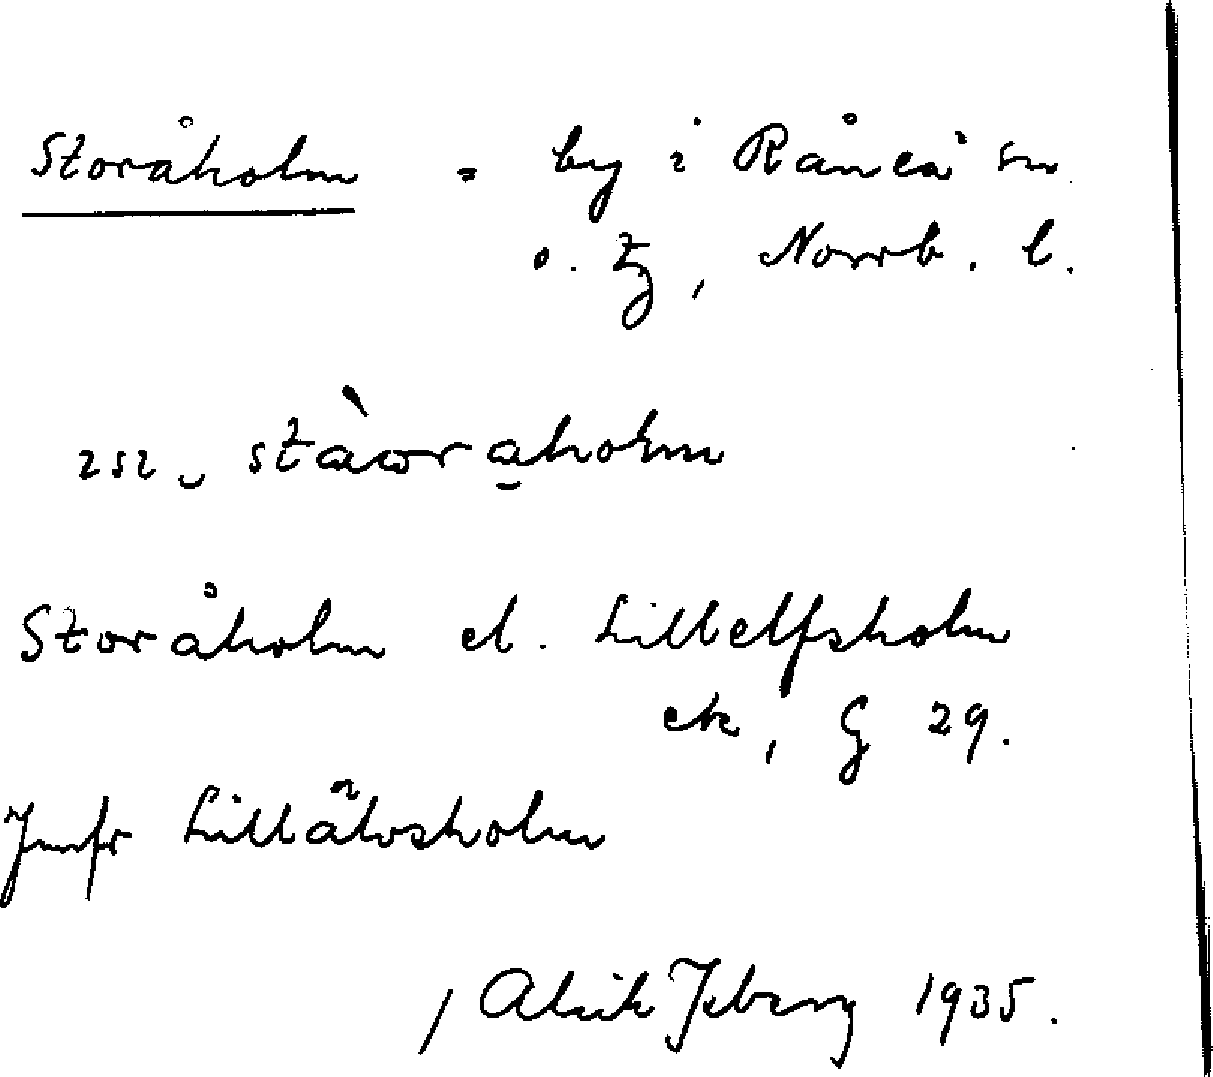 Storåholm = by i Råneå sn
o. tg, Norrb. l.
stàoraholm
Storåholm el. Lillelfsholm
ek, G 29.
Jmfr Lillälvsholm
/ Alrik Isberg 1935.